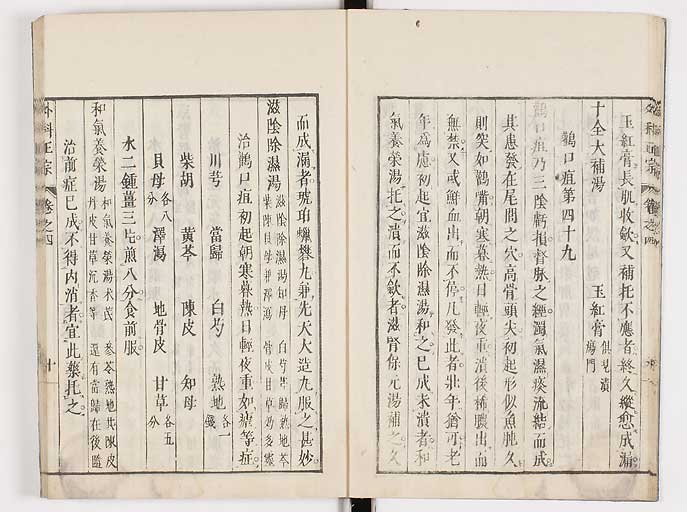 外科正宗 卷之四
玉紅膏長肌收斂又補托不應者終久縱愈成漏
十全大補湯 玉紅膏 俱見潰瘍門
鸛口疽第四十九
鸛口疽乃三陰虧損督脈之經濁氣濕痰流結而成
其患發在尾閭之穴高骨頭尖初起形似魚肫久
則突如鸛嘴朝寒暮熱日輕夜重潰後稀膿出而
無禁又或鮮血出而不停凡發此者壯年猶可老
年為慮初起宜滋陰除濕湯和之已成未潰者和
氣養榮湯托之潰而不斂者滋腎保元湯補之久
而成漏者琥珀蠟礬丸兼先天大造丸服之甚妙
滋陰除濕湯 滋陰除濕湯知母 白芍芎歸熟地芩 柴陳貝母兼澤瀉 骨皮甘草効多靈
治鸛口疽初起朝寒暮熱日輕夜重如瘧等症
川芎 當歸 白芍 熟地 各一錢
柴胡 黃芩 陳皮 知母
貝母 各八分 澤瀉 地骨皮 甘草 各五分
水二鍾薑三片煎八分食前服
和氣養榮湯 和氣養榮湯朮茂 參苓熟地共陳皮 丹皮甘草沉香等 還有當歸在後隨
治前症已成不得內消者宜此藥托之
外科正宗 卷之四 十